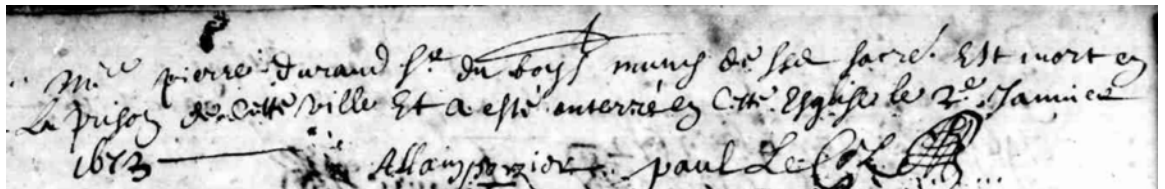 Mre pierre durand Sr du boys muny de ses sacre. Est mort en
La prison de cette ville Et a esté enterré en Cette Esglise le 2e Janvier
1673 Allain paul Le